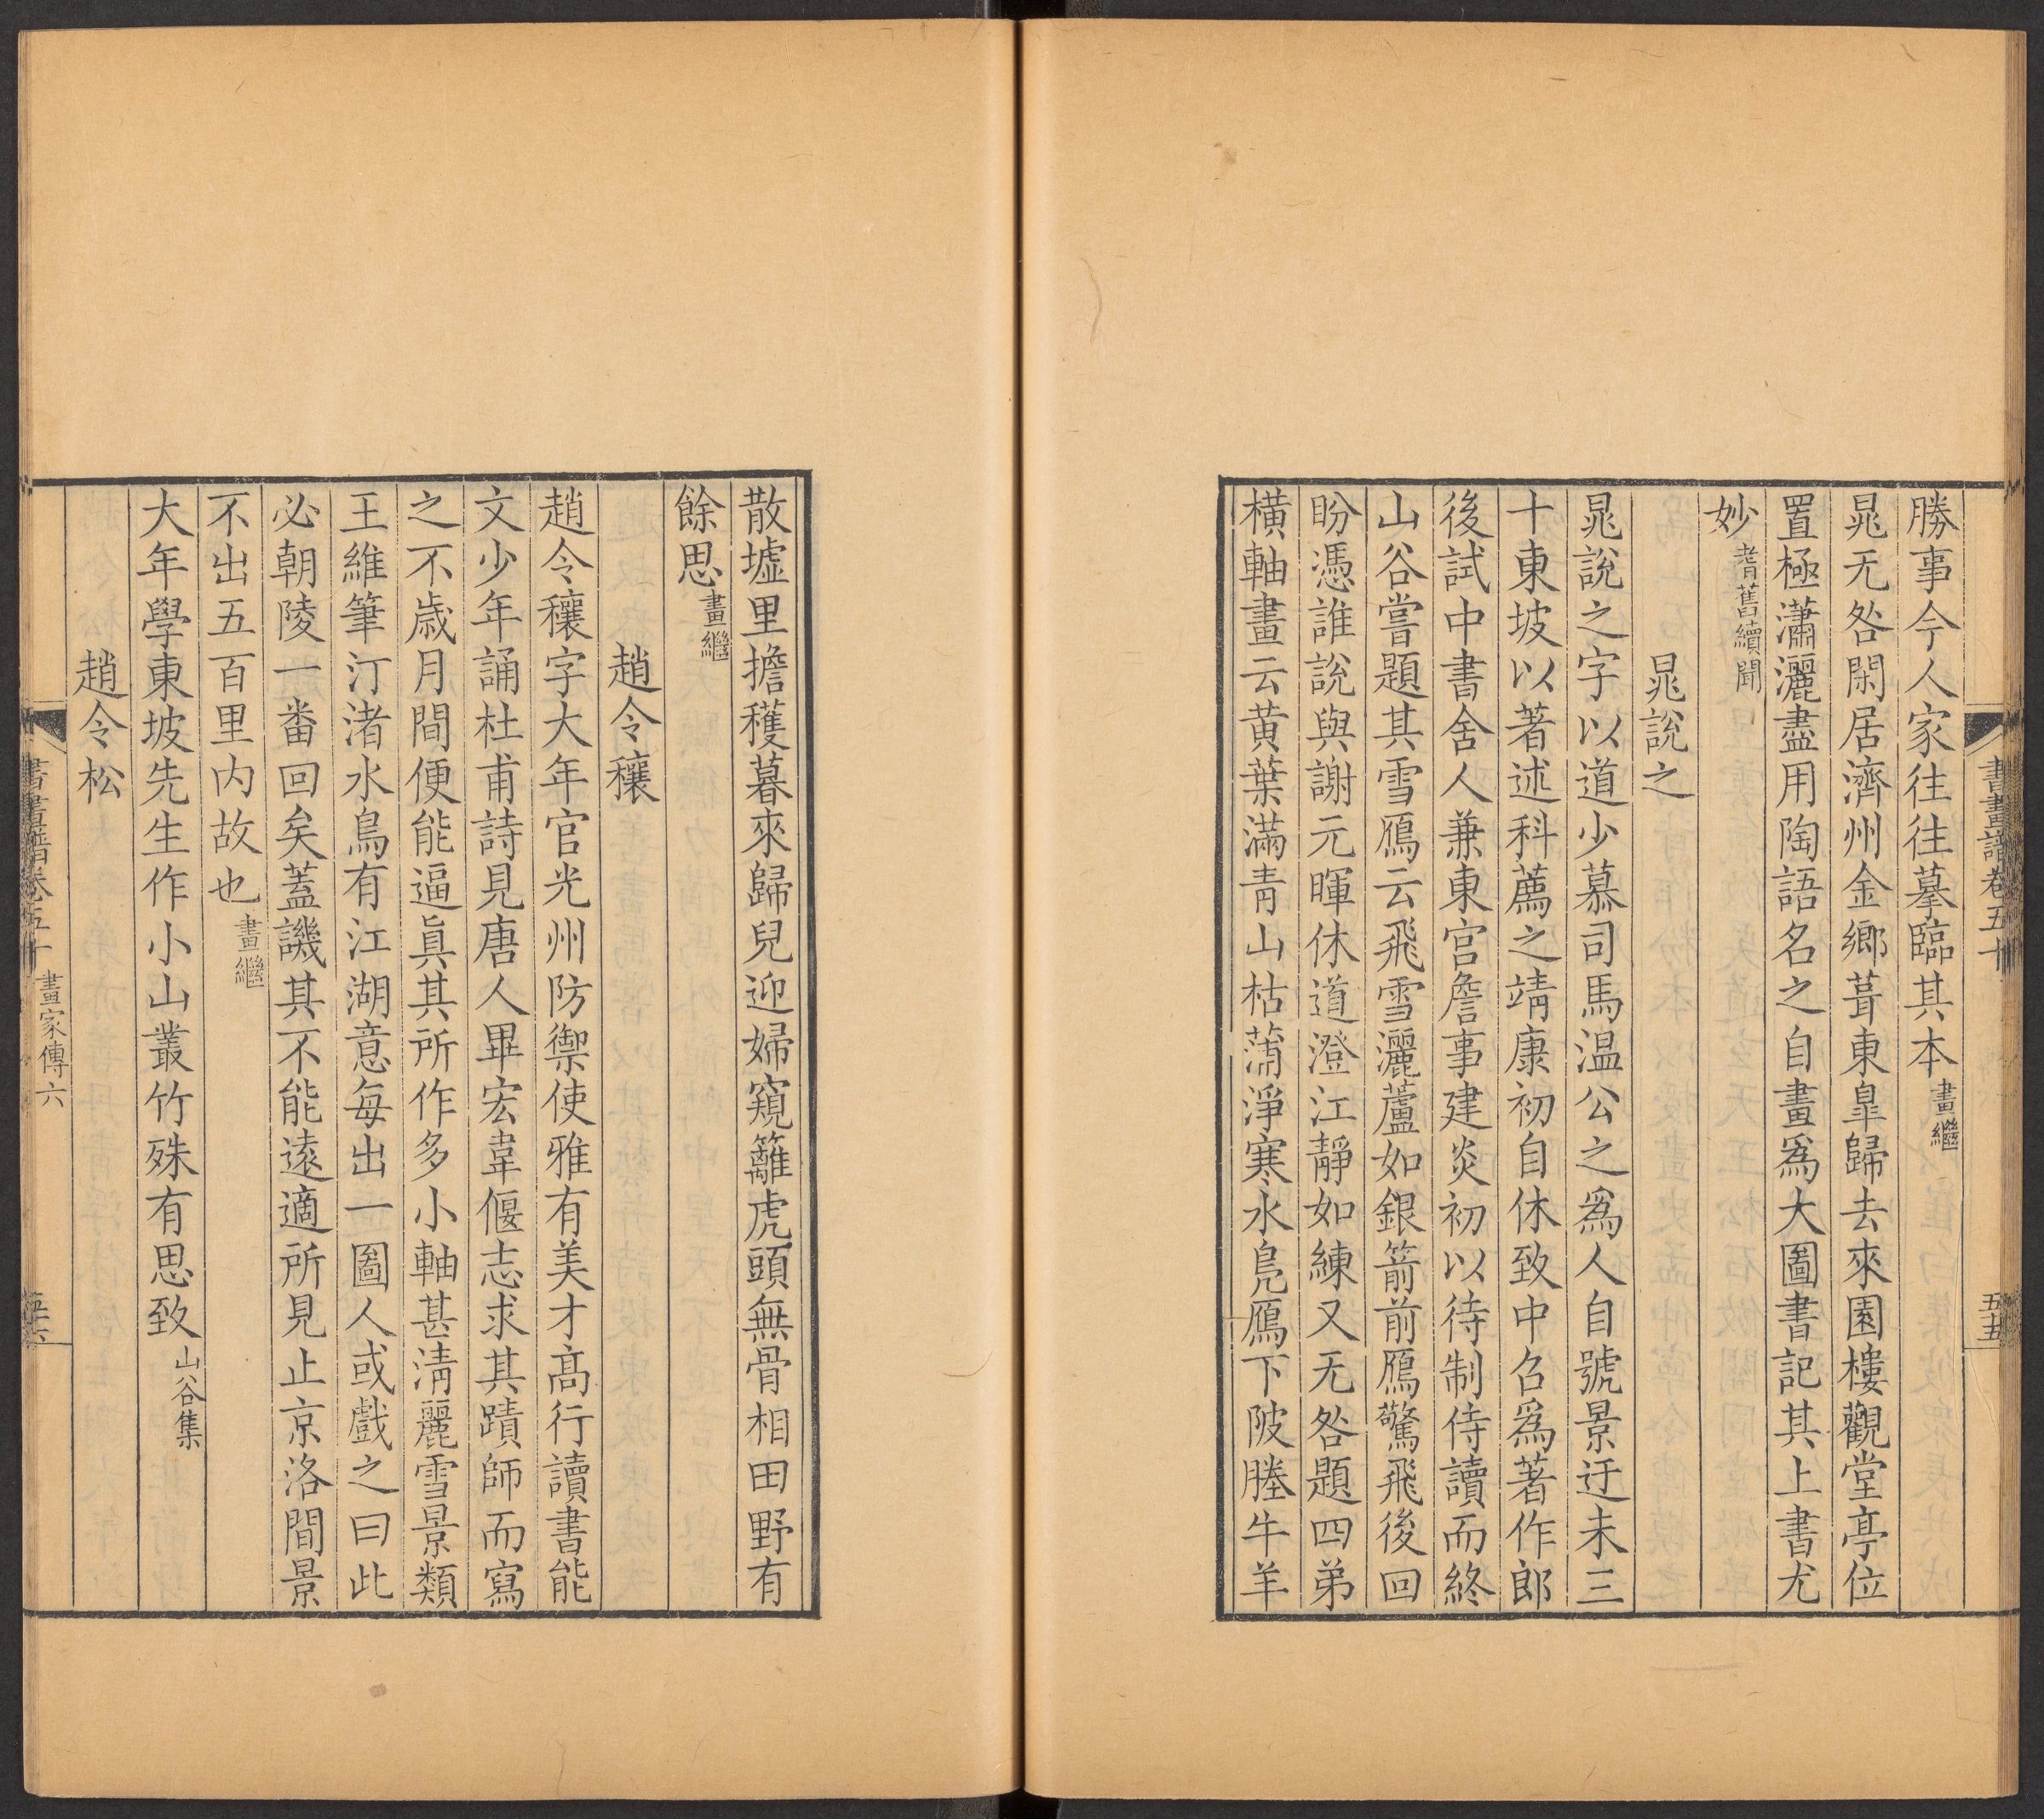 書畫譜卷五十
五五
勝事今人家往往摹臨其本畫繼
晁无咎閑居濟州金鄉葺東臯歸去來園樓觀堂亭位
置極瀟灑盡用陶語名之自畫爲大圖書記其上書尤
妙耆舊續聞
晁說之
晁說之字以道少慕司馬温公之爲人自號景迂未三
十東坡以著述科薦之靖康初自休致中召爲著作郎
後試中書舍人兼東宫詹事建炎初以待制侍讀而終
山谷嘗題其雪鴈云飛雪灑蘆如銀箭前鴈驚飛後回
盼憑誰說與謝元暉休道澄江靜如練又无咎題四弟
橫軸畫云黄葉滿青山枯蒲淨寒水鳧鴈下陂塍牛羊
散墟里擔穫暮來歸兒迎婦窺籬虎頭無骨相田野有
餘思畫繼
趙令穰
趙令穰字大年官光州防禦使雅有美才髙行讀書能
文少年誦杜甫詩見唐人畢宏韋偃志求其蹟師而寫
之不歳月間便能逼眞其所作多小軸甚淸麗雪景類
王維筆汀渚水鳥有江湖意每出一圖人或戲之曰此
必朝陵一番回矣蓋譏其不能遠適所見止京洛間景
不出五百里内故也畫繼
大年學東坡先生作小山叢竹殊有思致山谷集
趙令松
書畫譜卷五十
畫家傳六